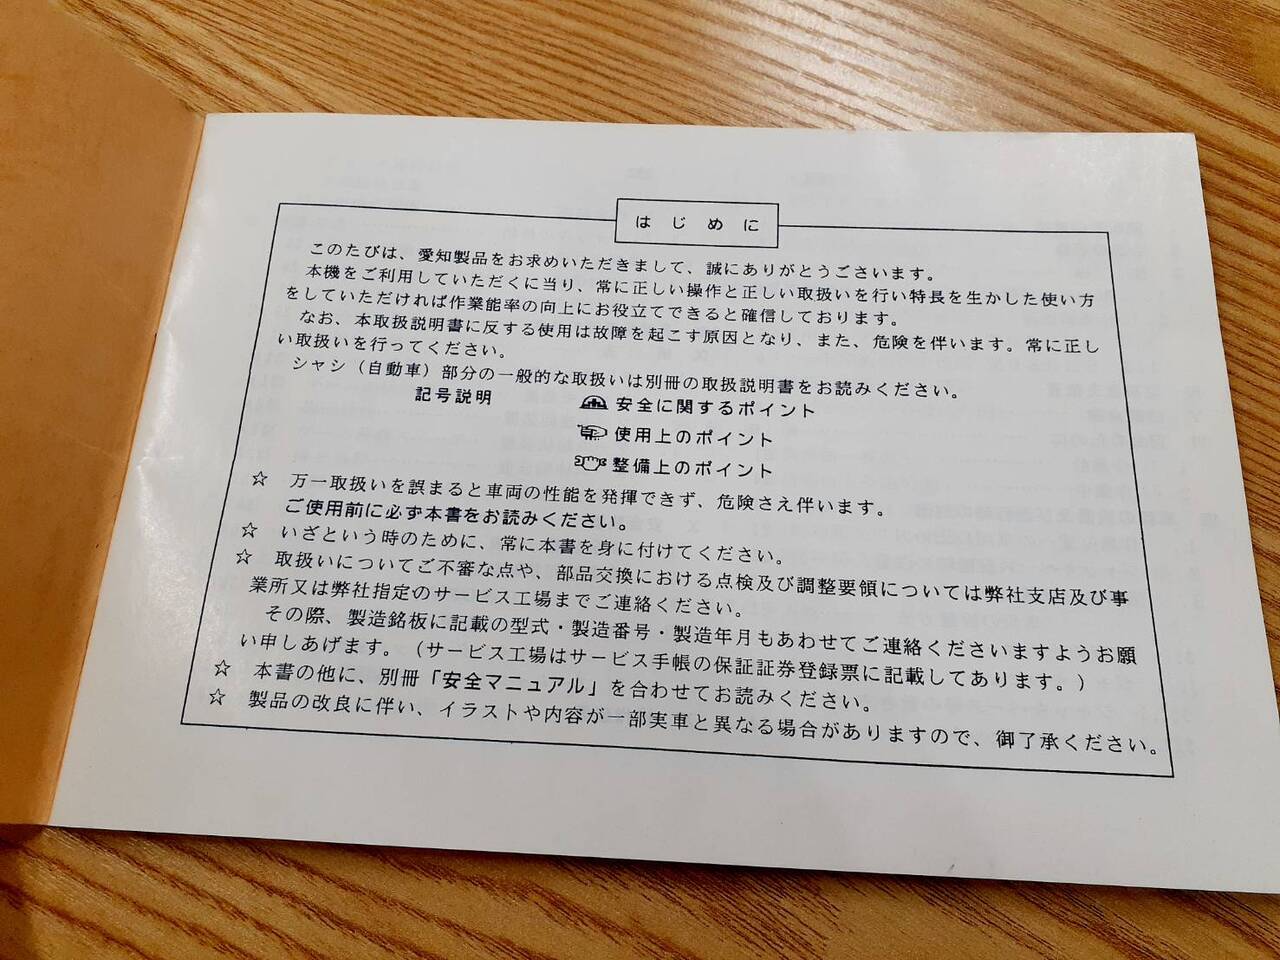 はじめに
このたびは、愛知製品をお求めいただきまして、誠にありがとうございます。
本機をご利用していただくに当り、常に正しい操作と正しい取扱いを行い特長を生かした使い方
をしていただければ作業能率の向上にお役立てできると確信しております。
なお、本取扱説明書に反する使用は故障を起こす原因となり、また、危険を伴います。常に正し
い取扱いを行ってください。
シャシ（自動車）部分の一般的な取扱いは別冊の取扱説明書をお読みください。
記号説明 安全に関するポイント
使用上のポイント
整備上のポイント
☆ 万一取扱いを誤まると車両の性能を発揮できず、危険さえ伴います。
ご使用前に必ず本書をお読みください。
☆ いざという時のために、常に本書を身に付けてください。
☆ 取扱いについてご不審な点や、部品交換における点検及び調整要領については弊社支店及び事
業所又は弊社指定のサービス工場までご連絡ください。
その際、製造銘板に記載の型式・製造番号・製造年月もあわせてご連絡くださいますようお願
い申しあげます。（サービス工場はサービス手帳の保証証券登録票に記載してあります。）
☆ 本書の他に、別冊「安全マニュアル」を合わせてお読みください。
☆ 製品の改良に伴い、イラストや内容が一部実車と異なる場合がありますので、御了承ください。